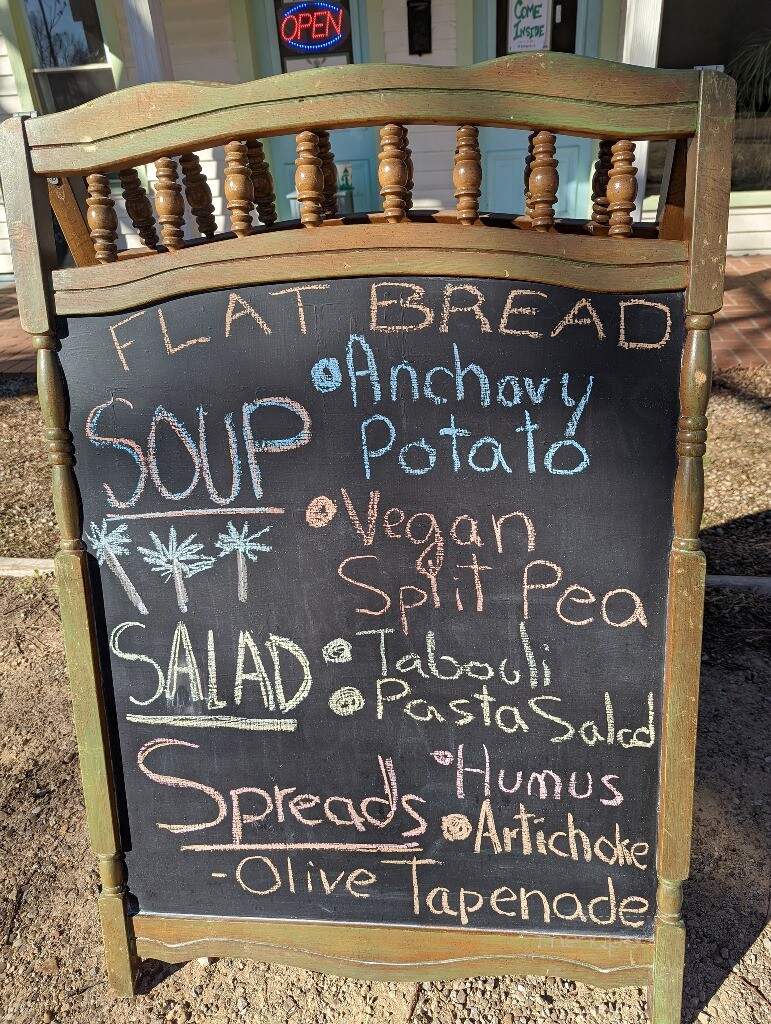 OPEN
COME
INSIDE
FLAT BREAD
SOUP
• Anchovy
Potato
• Vegan
Split Pea
SALAD
• Tabouli
• Pasta Salad
Spreads
• Humus
• Artichoke
- Olive Tapenade